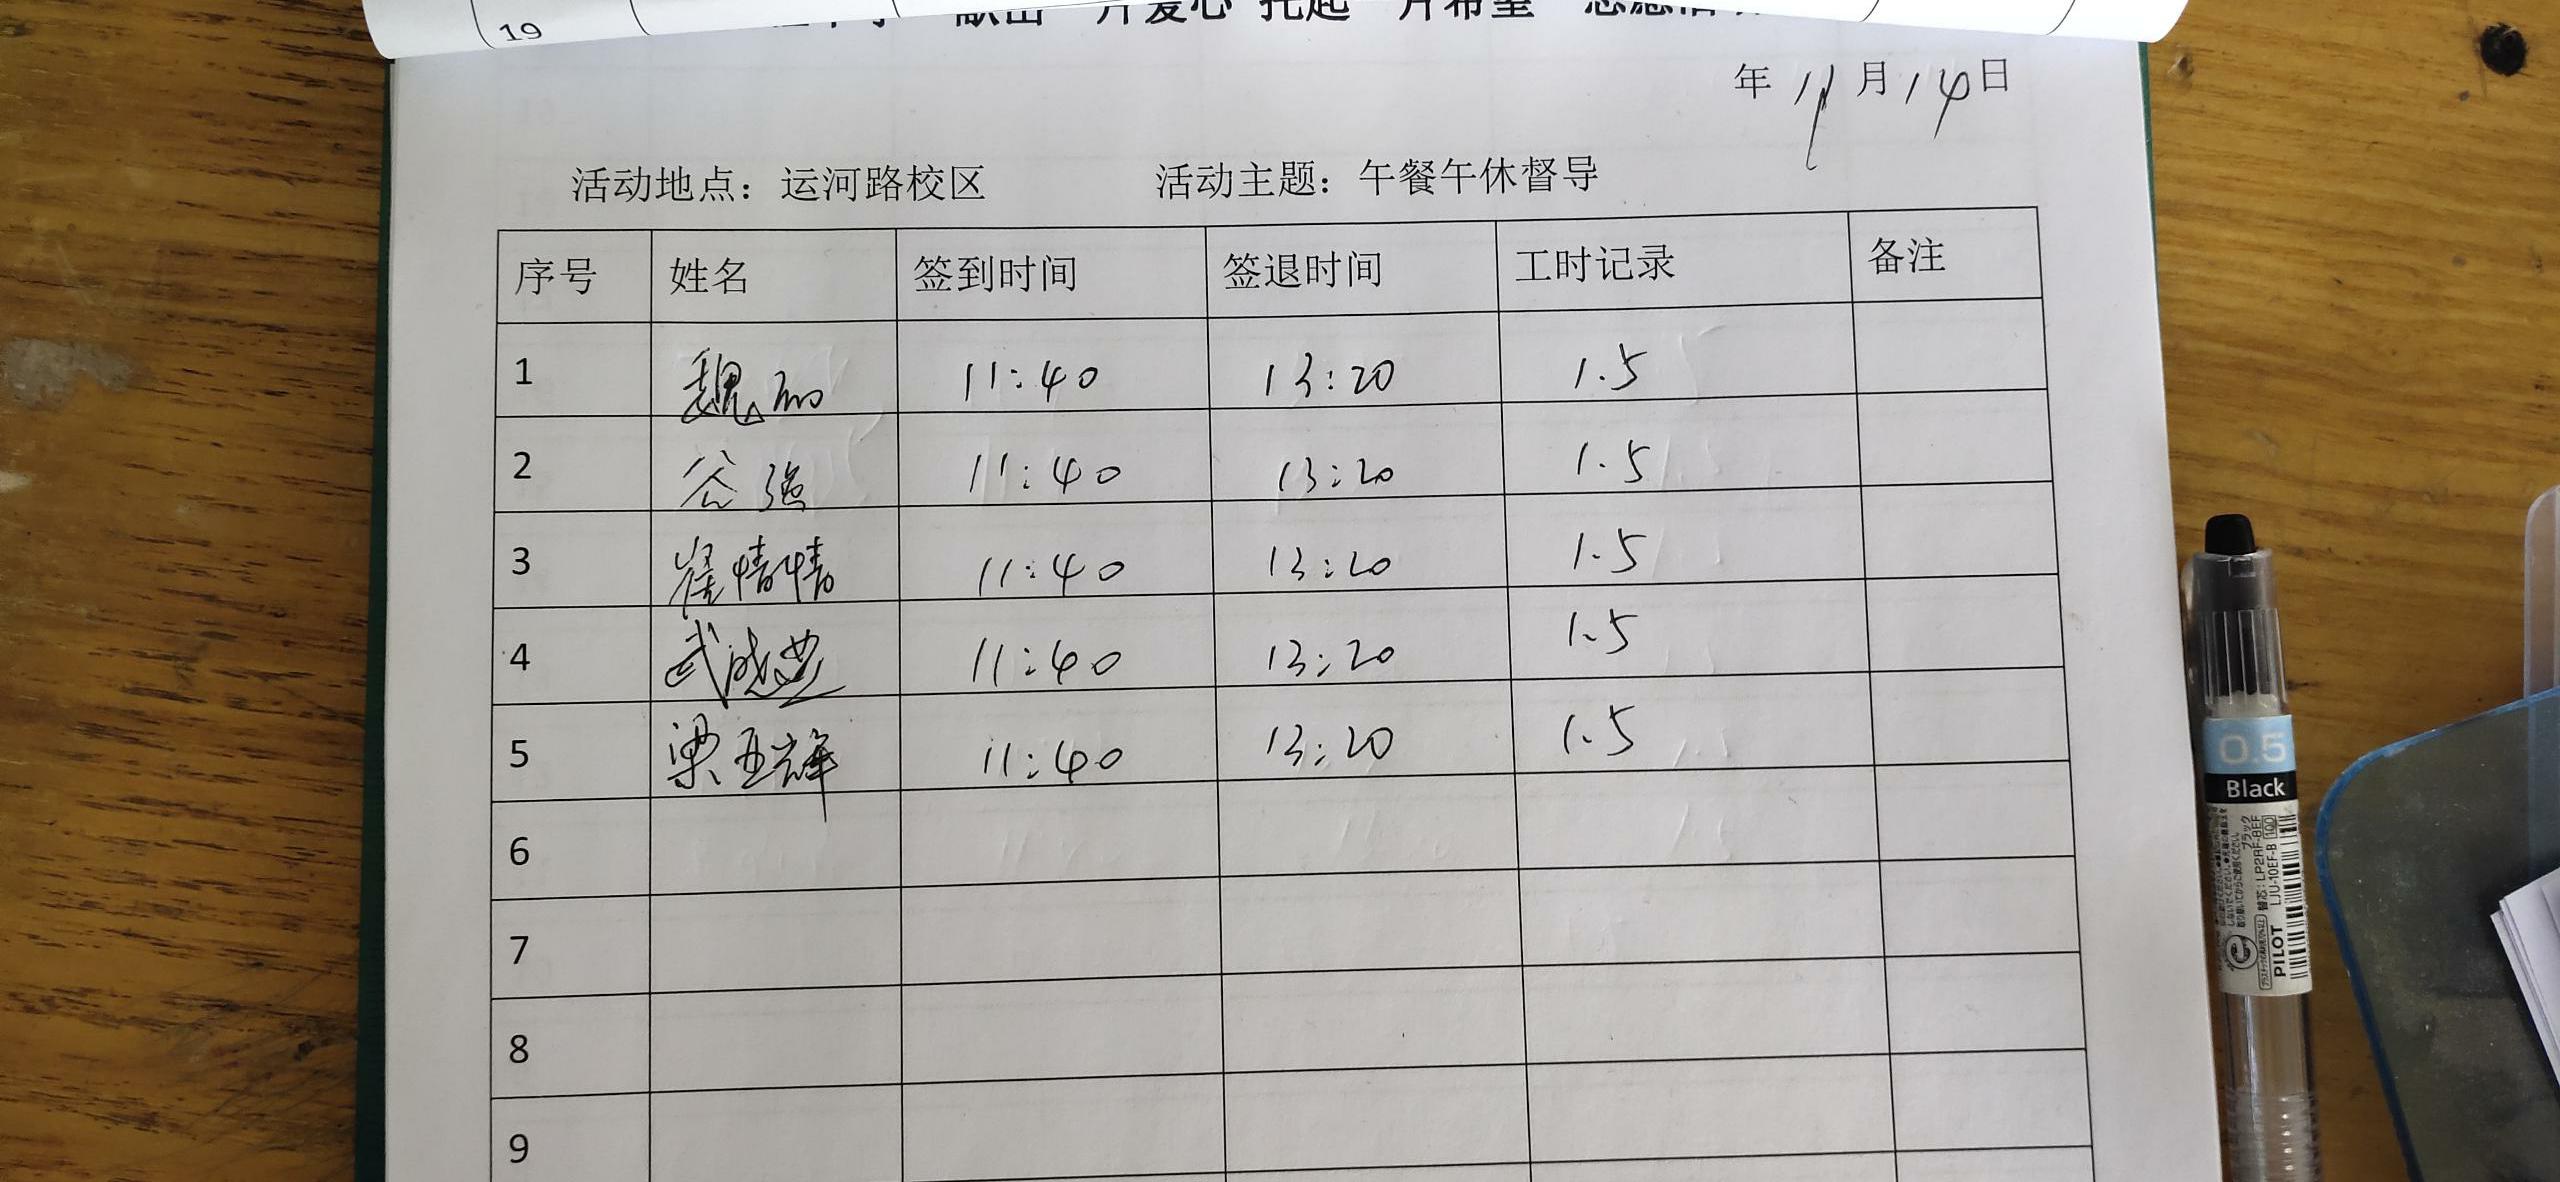 19
献出一片爱心 托起一片希望
年 11 月 14 日
活动地点：运河路校区 活动主题：午餐午休督导
序号 姓名 签到时间 签退时间 工时记录 备注
1 魏丽 11:40 13:20 1.5
2 谷强 11:40 13:20 1.5
3 崔倩倩 11:40 13:20 1.5
4 武 11:40 13:20 1.5
5 梁亚辉 11:40 13:20 1.5
6
7
8
9
0.5
Black
PILOT
LJU-10EF-B 100
替芯：LP2RF-8EF
ブラック